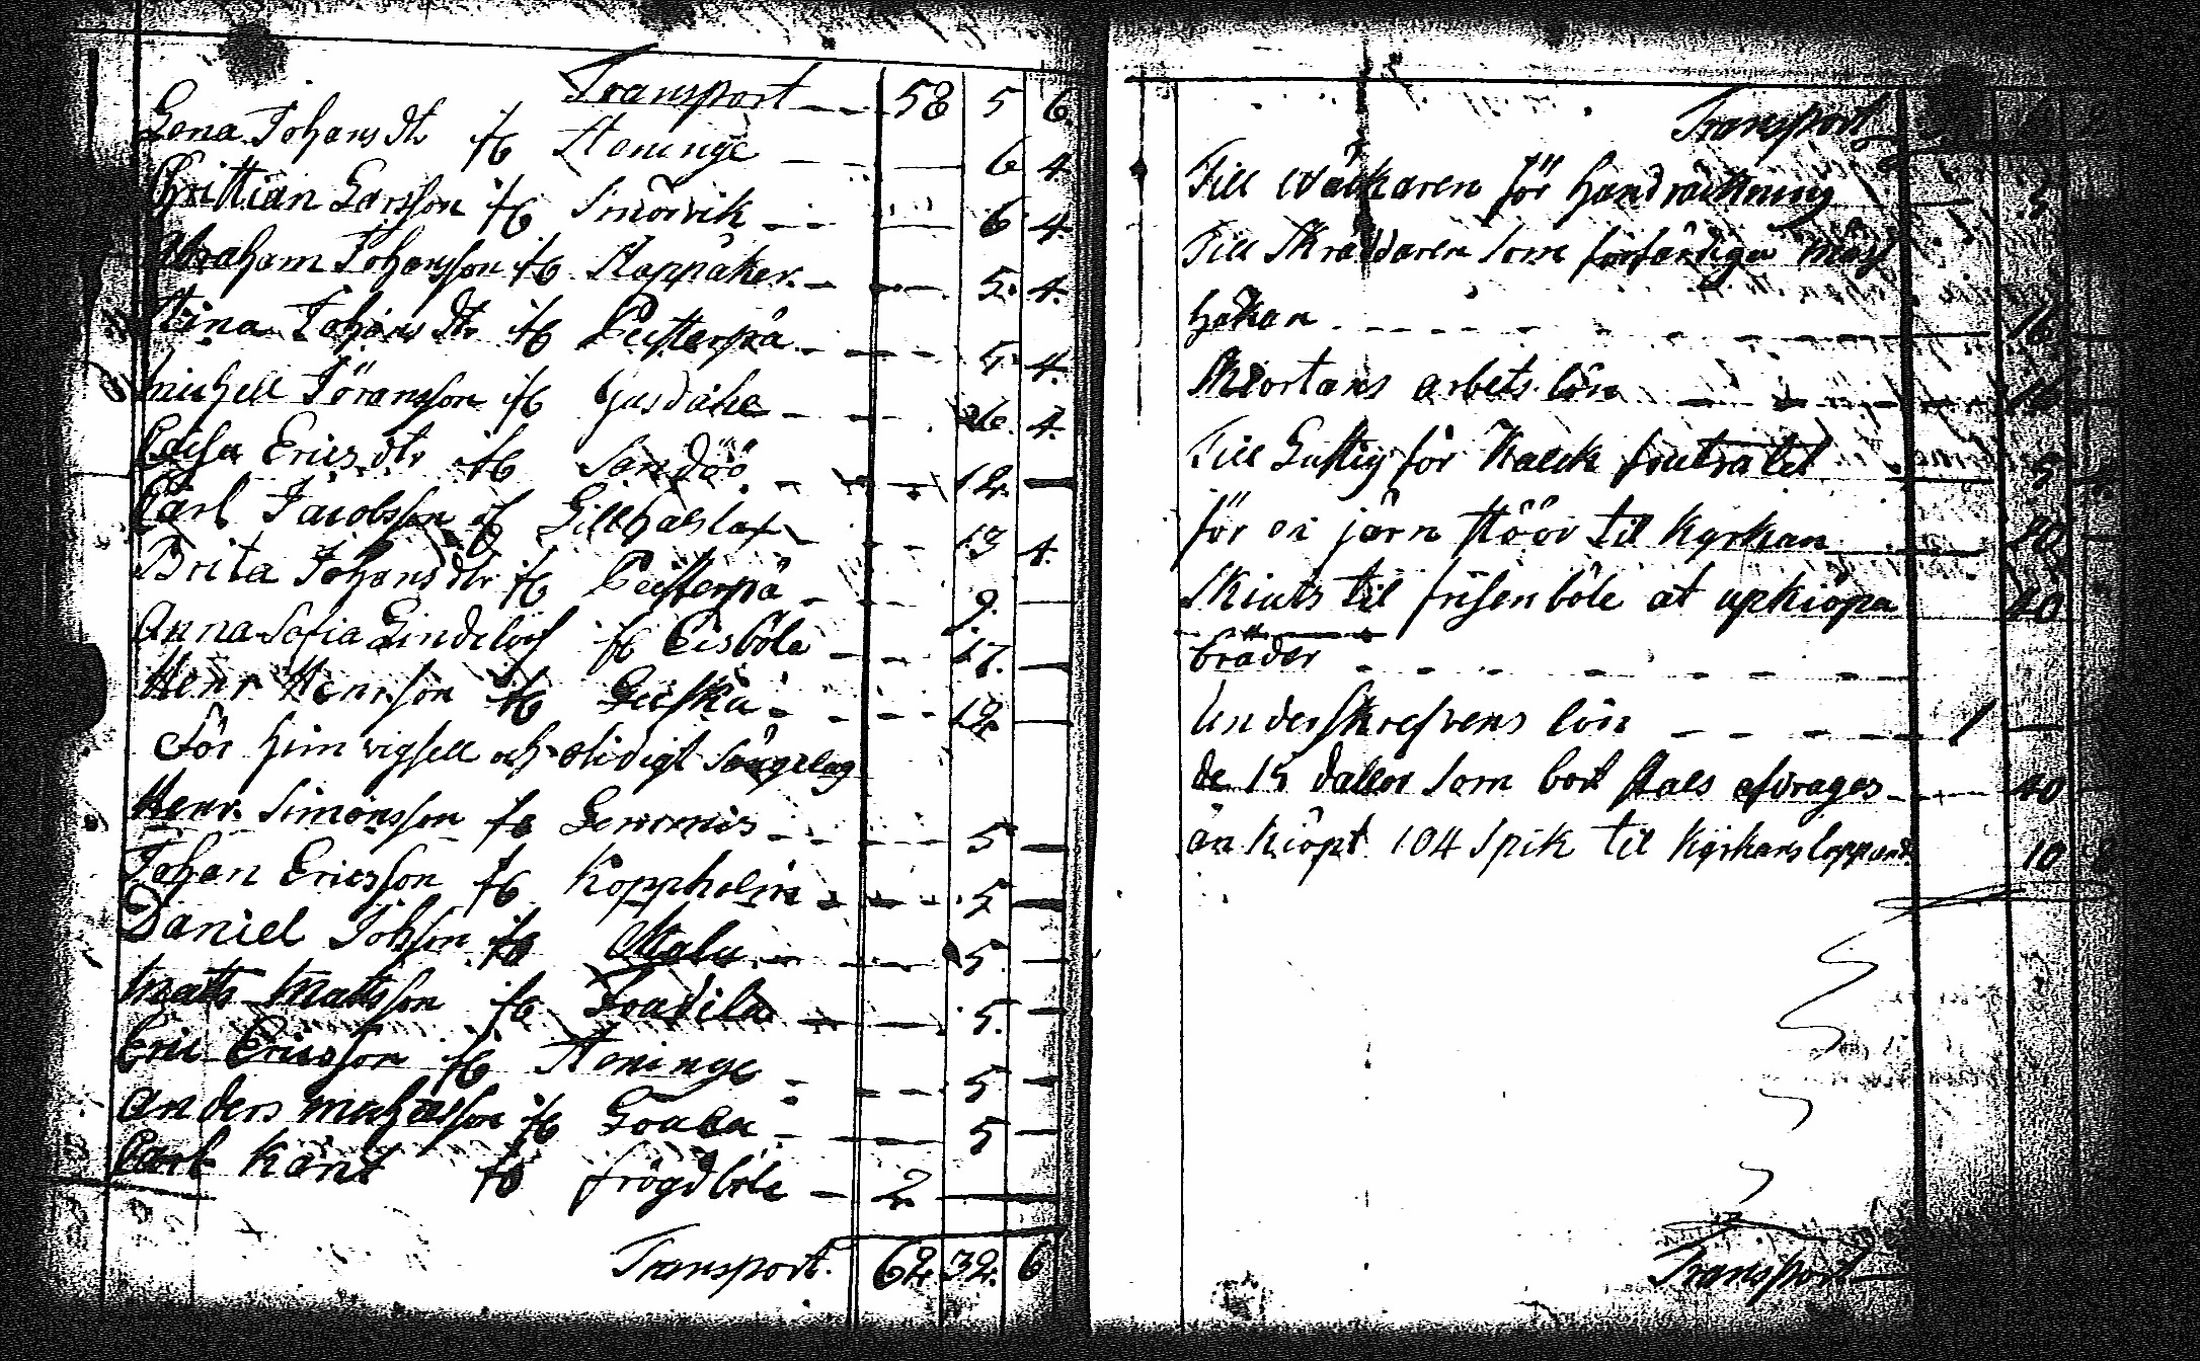 Transport 58 5 6
Lena Johans dtr fr Steninge 6 4
Christian Larsson fr Smörvik 6 4
Abraham Johansson fr Stappåker 5 4
Stina Johans dtr fr Peisterpå 5 4
Michell Jöransson fr 26 4
Caisa Erics dtr fr Sandöö 12
Carl Jacobsson fr Lillhalslax 13 4
Brita Johans dtr fr Peisterpå 9
Anna Sofia fr Eisböle 17
Henr Henrsson fr 12
För him vigsell och otidigt Sängelag
Henr Simonsson fr 5
Johan Ericsson fr Koppholm 5
Daniel Johsson fr 5
Matts Mattsson fr 5
Eric Ericsson fr Steninge 5
Anders Michelsson fr 5
Carl Känt fr frögdböle 2
Transport 62 32 6
Transport
Till Wäckaren för handräckning 5
Till Skräddaren som förfärdiga Mäss
hakan 16
Skiortans arbets lön
Till för Kalck 5
för järn stöör til Kyrkan
Skiuts til frisenböle at upkiöpa 10
bräder
Underskrefvens lön 1
de 15 dallor som bort stals afdrages 40
än kiöpt 104 Spik til Kyrkans 10
Transport